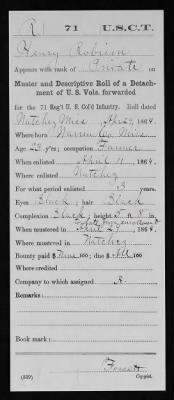 R | 71 | U.S.C.T.
Henry Robison
Appears with rank of Private on
Muster and Descriptive Roll of a Detach-
ment of U. S. Vols. forwarded
for the 71 Reg't U. S. Col'd Infantry. Roll dated
Natchez Miss Apr 29, 1864.
Where born Warren Co. Miss
Age 23 y'rs; occupation Farmer
When enlisted April 11, 1864.
Where enlisted Natchez
For what period enlisted 3 years.
Eyes Black; hair Black
Complexion Black; height 5 ft. 8 in.
When mustered in April 27, 1864.
Where mustered in Natchez
Bounty paid $ None 100; due $ All 100
Where credited
Company to which assigned
Remarks:
Book mark:
(339)
Copyist.